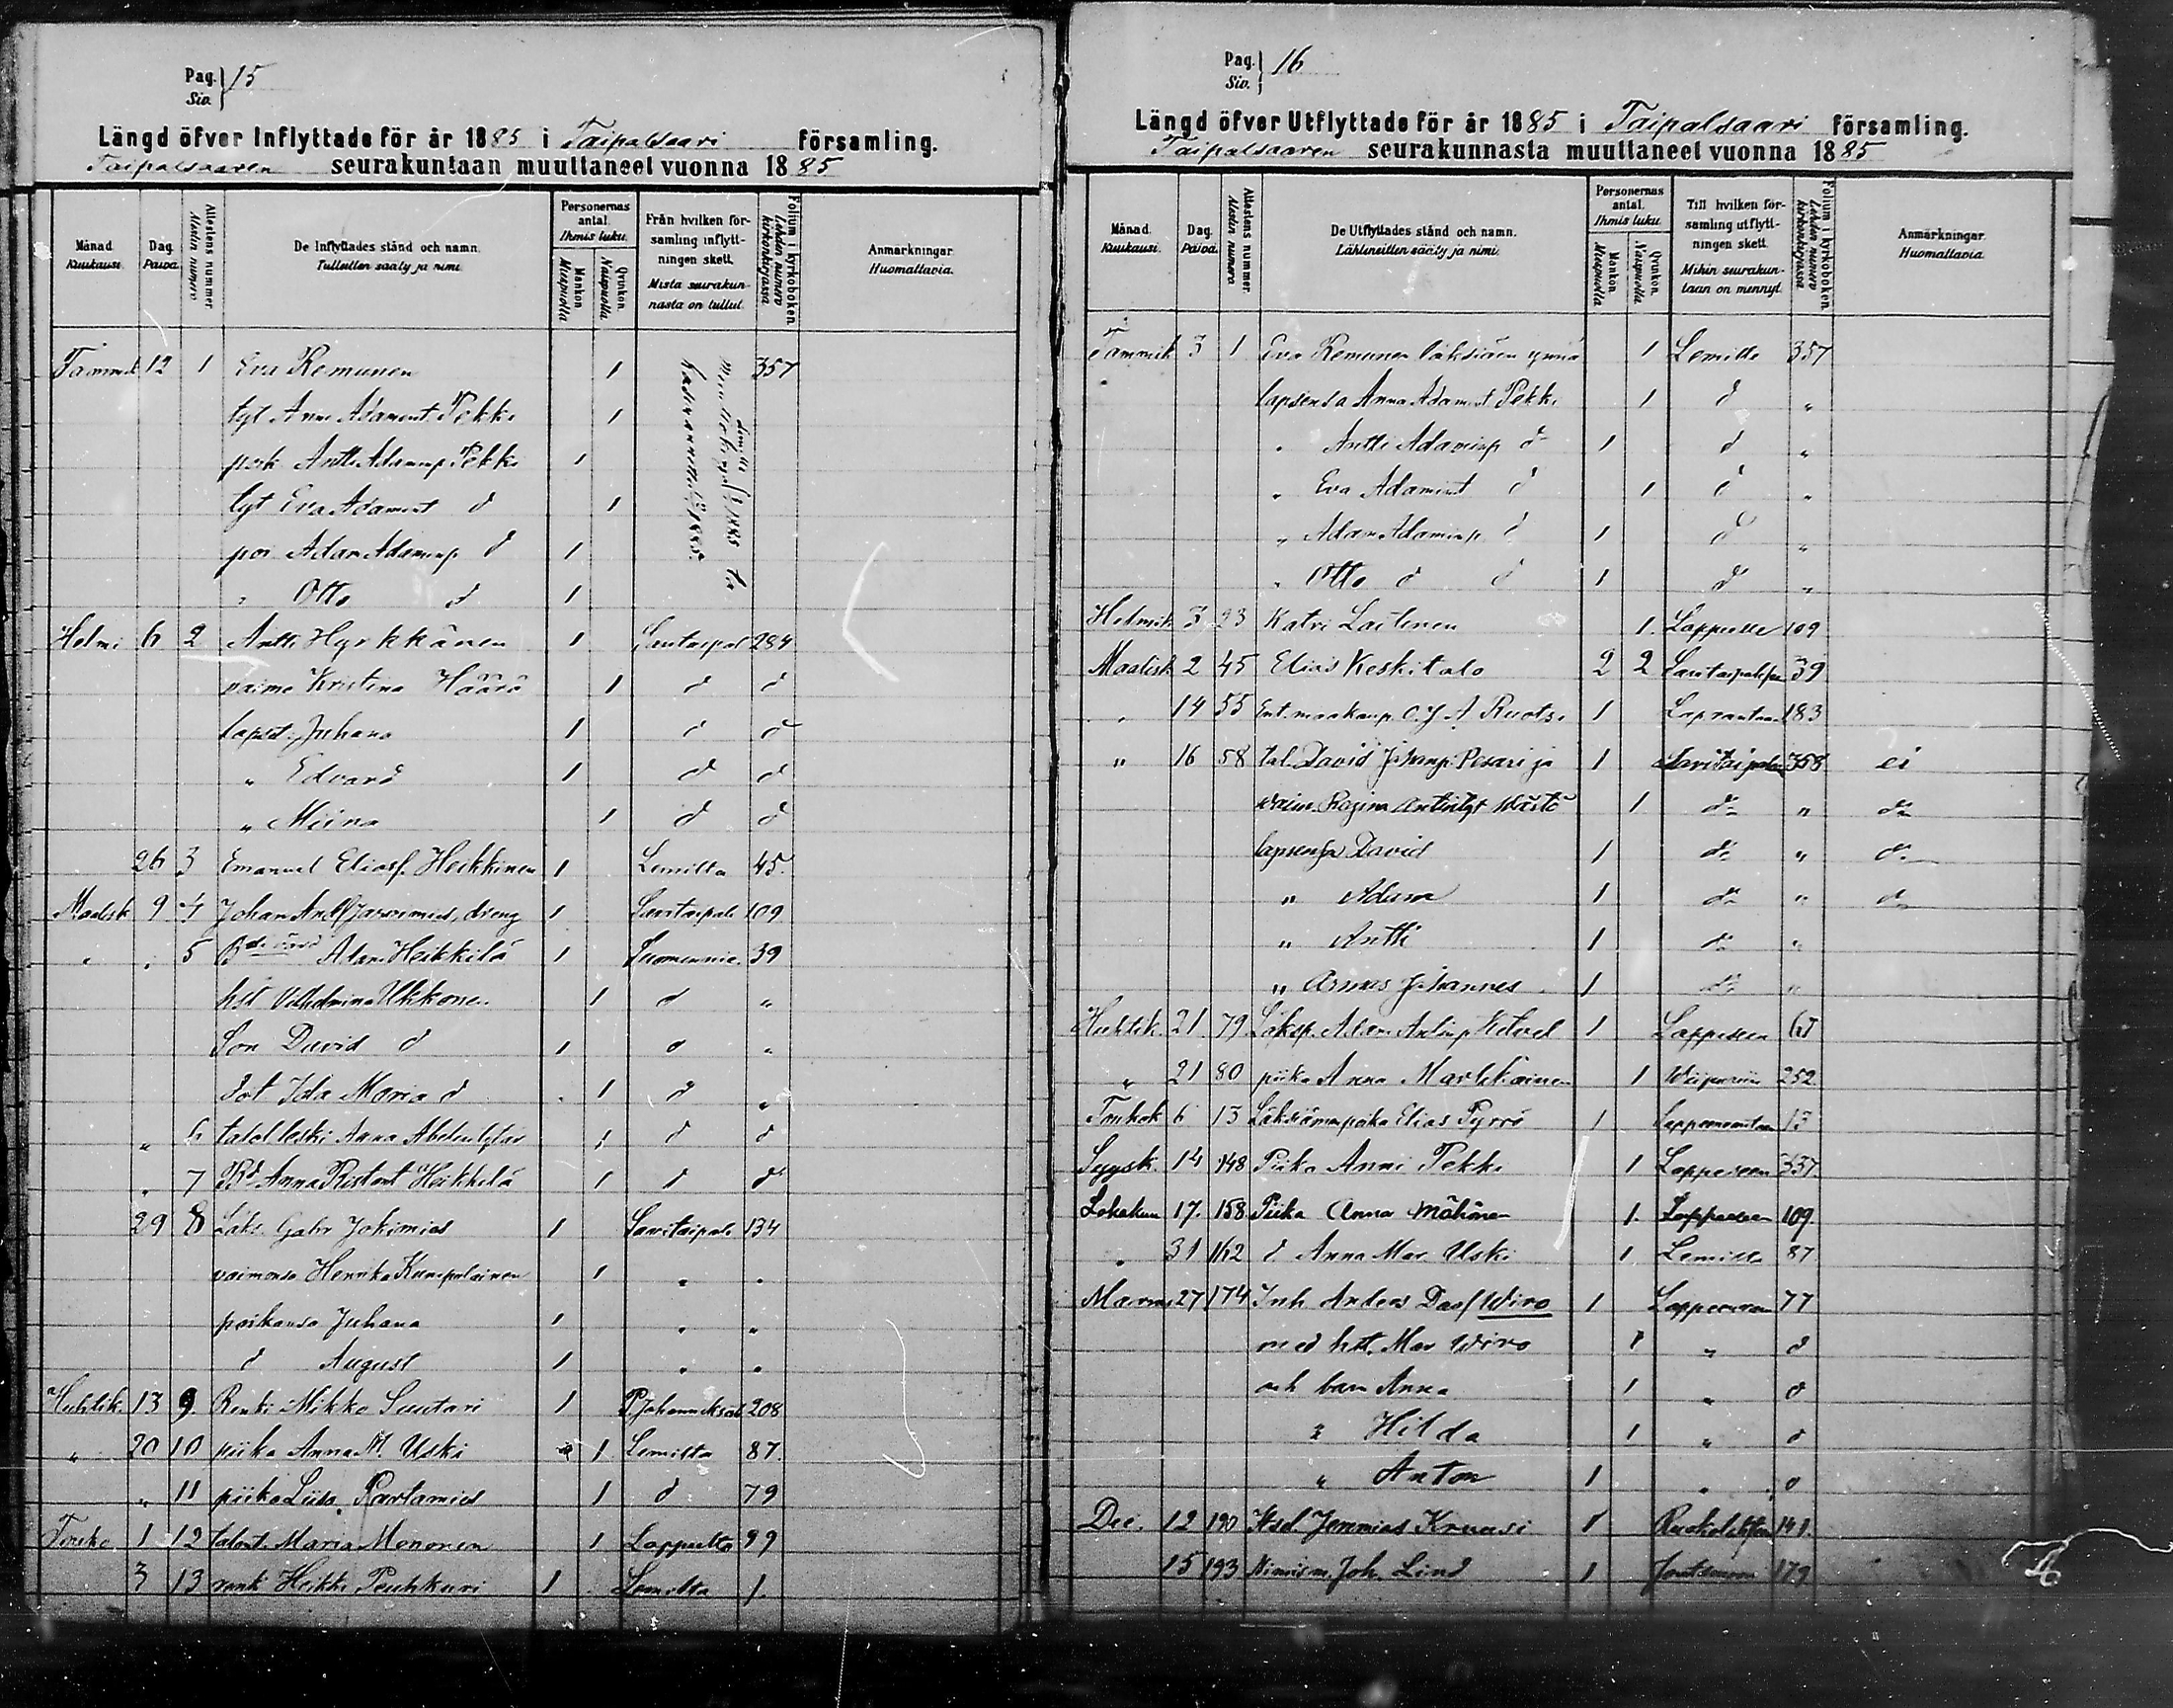 Pag. Siv. } 15
Längd öfver Inflyttade för år 1885 i Taipalsaari församling.
Taipalsaaren seurakuntaan muuttaneet vuonna 1885
Månad. Kuukausi.
Dag. Päivä.
Attestens nummer. Alestin numero.
De Inflyttades stånd och namn. Tulleitten sääty ja nimi.
Personernas antal. Ihmis luku.
Mankön. Miespuolia
Qvinkön. Naispuolia.
Från hvilken församling inflyttningen skett. Mista seurakunnasta on tullut.
Folium i kyrkoboken. Lehden numero kirkonkirjassa
Anmärkningar. Huomattavia.
Tammik 12 1 Eva Remunen 1 357
tyt Anna Adamint Pekki 1
poik Antti Adaminp Pekki 1
tyt Eva Adamint d 1
poi Adam Adaminp d 1
" Otto d 1
Helmi 6 2 Antti Hyrkkänen 1 Savitaipal 284
vaimo Kristina Häärä 1 d d
lapset Juhana 1 d d
" Edvard 1 d d
" Miina 1 d d
26 3 Emanuel Eliasf. Heikkinen 1 Lemilta 45.
Maalisk 9 4 Johan Andf Jarvimies, dreng 1 Savitaipale 109
" " 5 Adam Heikkilä 1 Suomennie. 39
hst Vilhelmina Ukkonen 1 d "
Son David d 1 d "
dot Ida Maria d 1 d "
" 6 talol leski Anna Abelintytar 1 d d
" 7 Anna Ristont Heikkilä 1 d d
29 8 Läks. Gabr Jokimies 1 Savitaipale 134
vaimonsa Henrika Kumpulainen 1 " "
poikansa Juhana 1 " "
d August 1 " "
Huhtik. 13 9. Renki Mikko Suutari 1 P. Johanneksel 208
" 20 10 piika Anna M. Uski 1 Lemilta 87.
" 11 piika Liisa Partamies 1 d 79
Touko 1 12 talont. Maria Mononen 1 Lappeelta 99
3 13 renk Heikki Peuhkuri 1 Lemilta 1.
Pag. Siv. } 16
Längd öfver Utflyttade för år 1885 i Taipalsaari församling.
Taipalsaaren seurakunnasta muuttaneet vuonna 1885
Månad. Kuukausi.
Dag. Päivä.
Attestens nummer. Alestin numero.
De Utflyttades stånd och namn. Lähteneitten sääty ja nimi.
Personernas antal. Ihmis luku.
Mankön. Miespuolia
Qvinkön. Naispuolia.
Till hvilken församling utflyttningen skett. Mihin seurakuntaan on mennyt.
Folium i kyrkoboken. Lehden numero kirkonkirjassa
Anmärkningar. Huomattavia.
Tammik 3 1 Eva Remunen 1 Lemille 357
lapsensa Anna Adamint Pekki 1 d "
" Antti Adaminp d 1 d "
" Eva Adamint d 1 d "
" Adam Adaminp d 1 d "
" Otto d d 1 d "
Helmik 3 23 Katri Laitinen 1. Lappelle 109
Maalisk 2 45 Elias Keskitalo 2 2 39
" 14 55 Ent. maakaup. C. J. A. Ruotsi 1 Laprantaan 183
" 16 58 tal. David Juhanp. Pesari ja 1 Savitaipale 358 ei
vaim. Regina Antintyt Wäätö 1 d:o " d:o
lapsensa David 1 d:o " d:o
" Adam 1 d:o " d:o
" Antti 1 d:o "
" Armas Johannes 1 d:o "
Huhtik. 21. 79 Läksp. Adam Antinp Ketvel 1 Lappeseen 65
" 21 80 piika Anna Markkainen 1 Wiipuriin 252.
Toukok 6 13 Elias Pyrrö 1 Lappeenrantaan 13
Syysk. 14 148 Piika Anni Pekki 1 Lappeseen 337
Lokakuu 17. 158 Piika Anna Mähönen 1. Lappeseen 109.
" 31 162 d Anna Mar. Uski 1 Lemille 87
Marras 27 174 Inh Anders Dasf Wiro 1 77
med hst. Mar Wiro 1 " d
och barn Anna 1 " d
" Hilda 1 " d
" Anton 1 " d
Dec. 12 190 Itsel Jeremias Kruusi 1 141.
15 193 Nimism. Joh. Lind 1 Joutsenoon 179